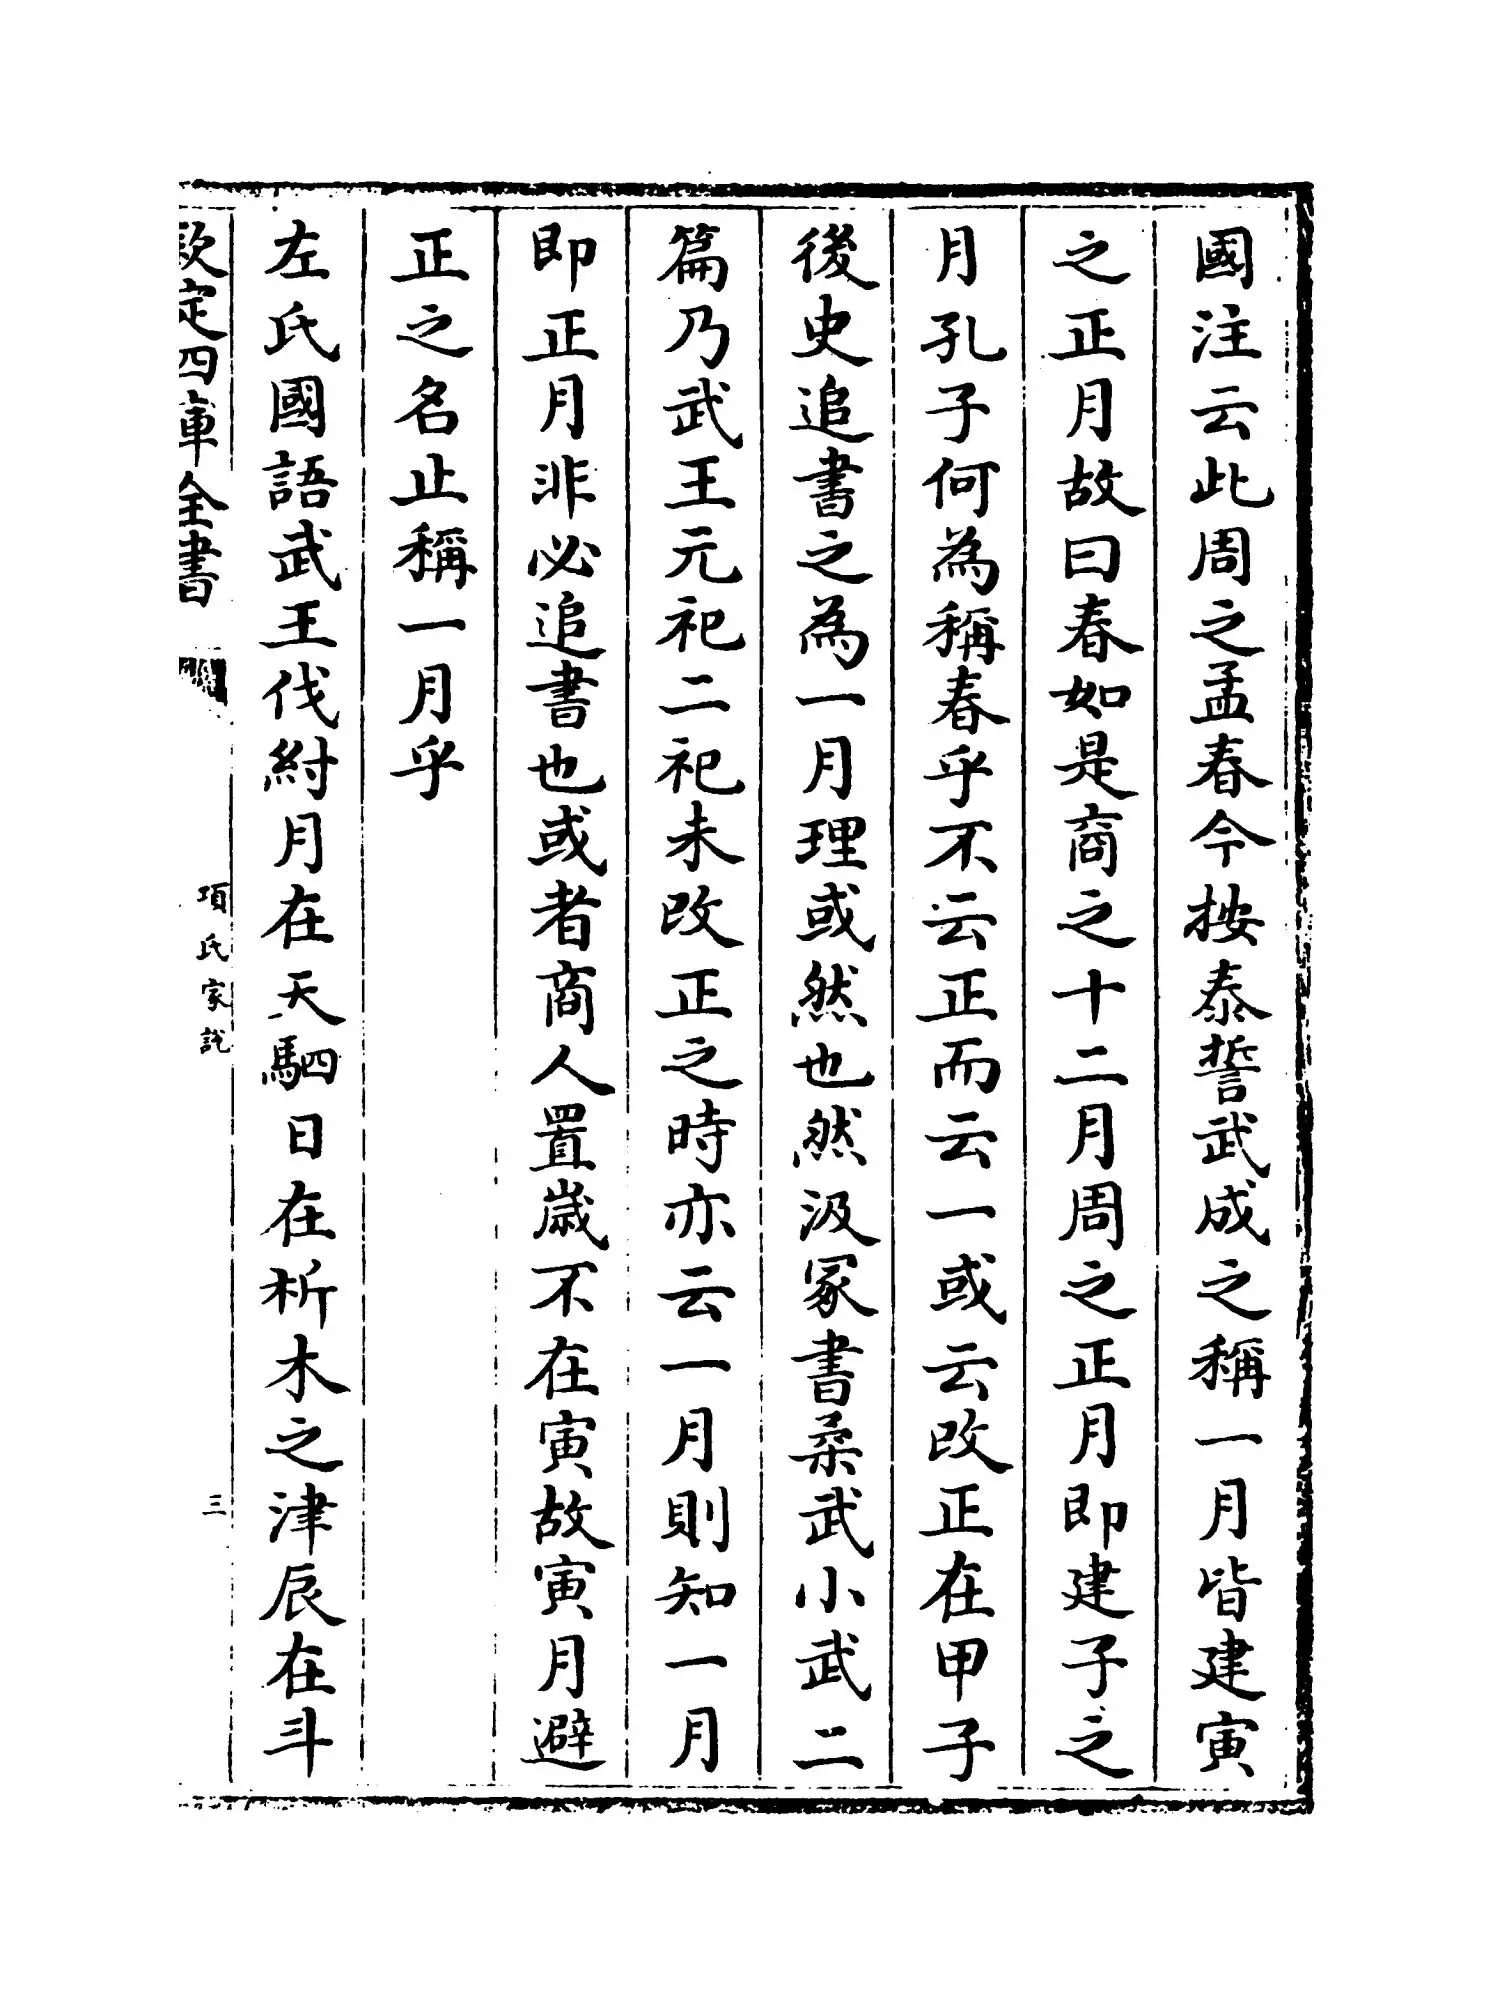 國注云此周之孟春今按泰誓武成之稱一月皆建寅
之正月故曰春如是商之十二月周之正月即建子之
月孔子何為稱春乎不云正而云一或云改正在甲子
後史追書之為一月理或然也然汲冢書柔武小武二
篇乃武王元祀二祀未改正之時亦云一月則知一月
即正月非必追書也或者商人置歲不在寅故寅月避
正之名止稱一月乎
左氏國語武王伐紂月在天駟日在析木之津辰在斗
欽定四庫全書
項氏家說
三